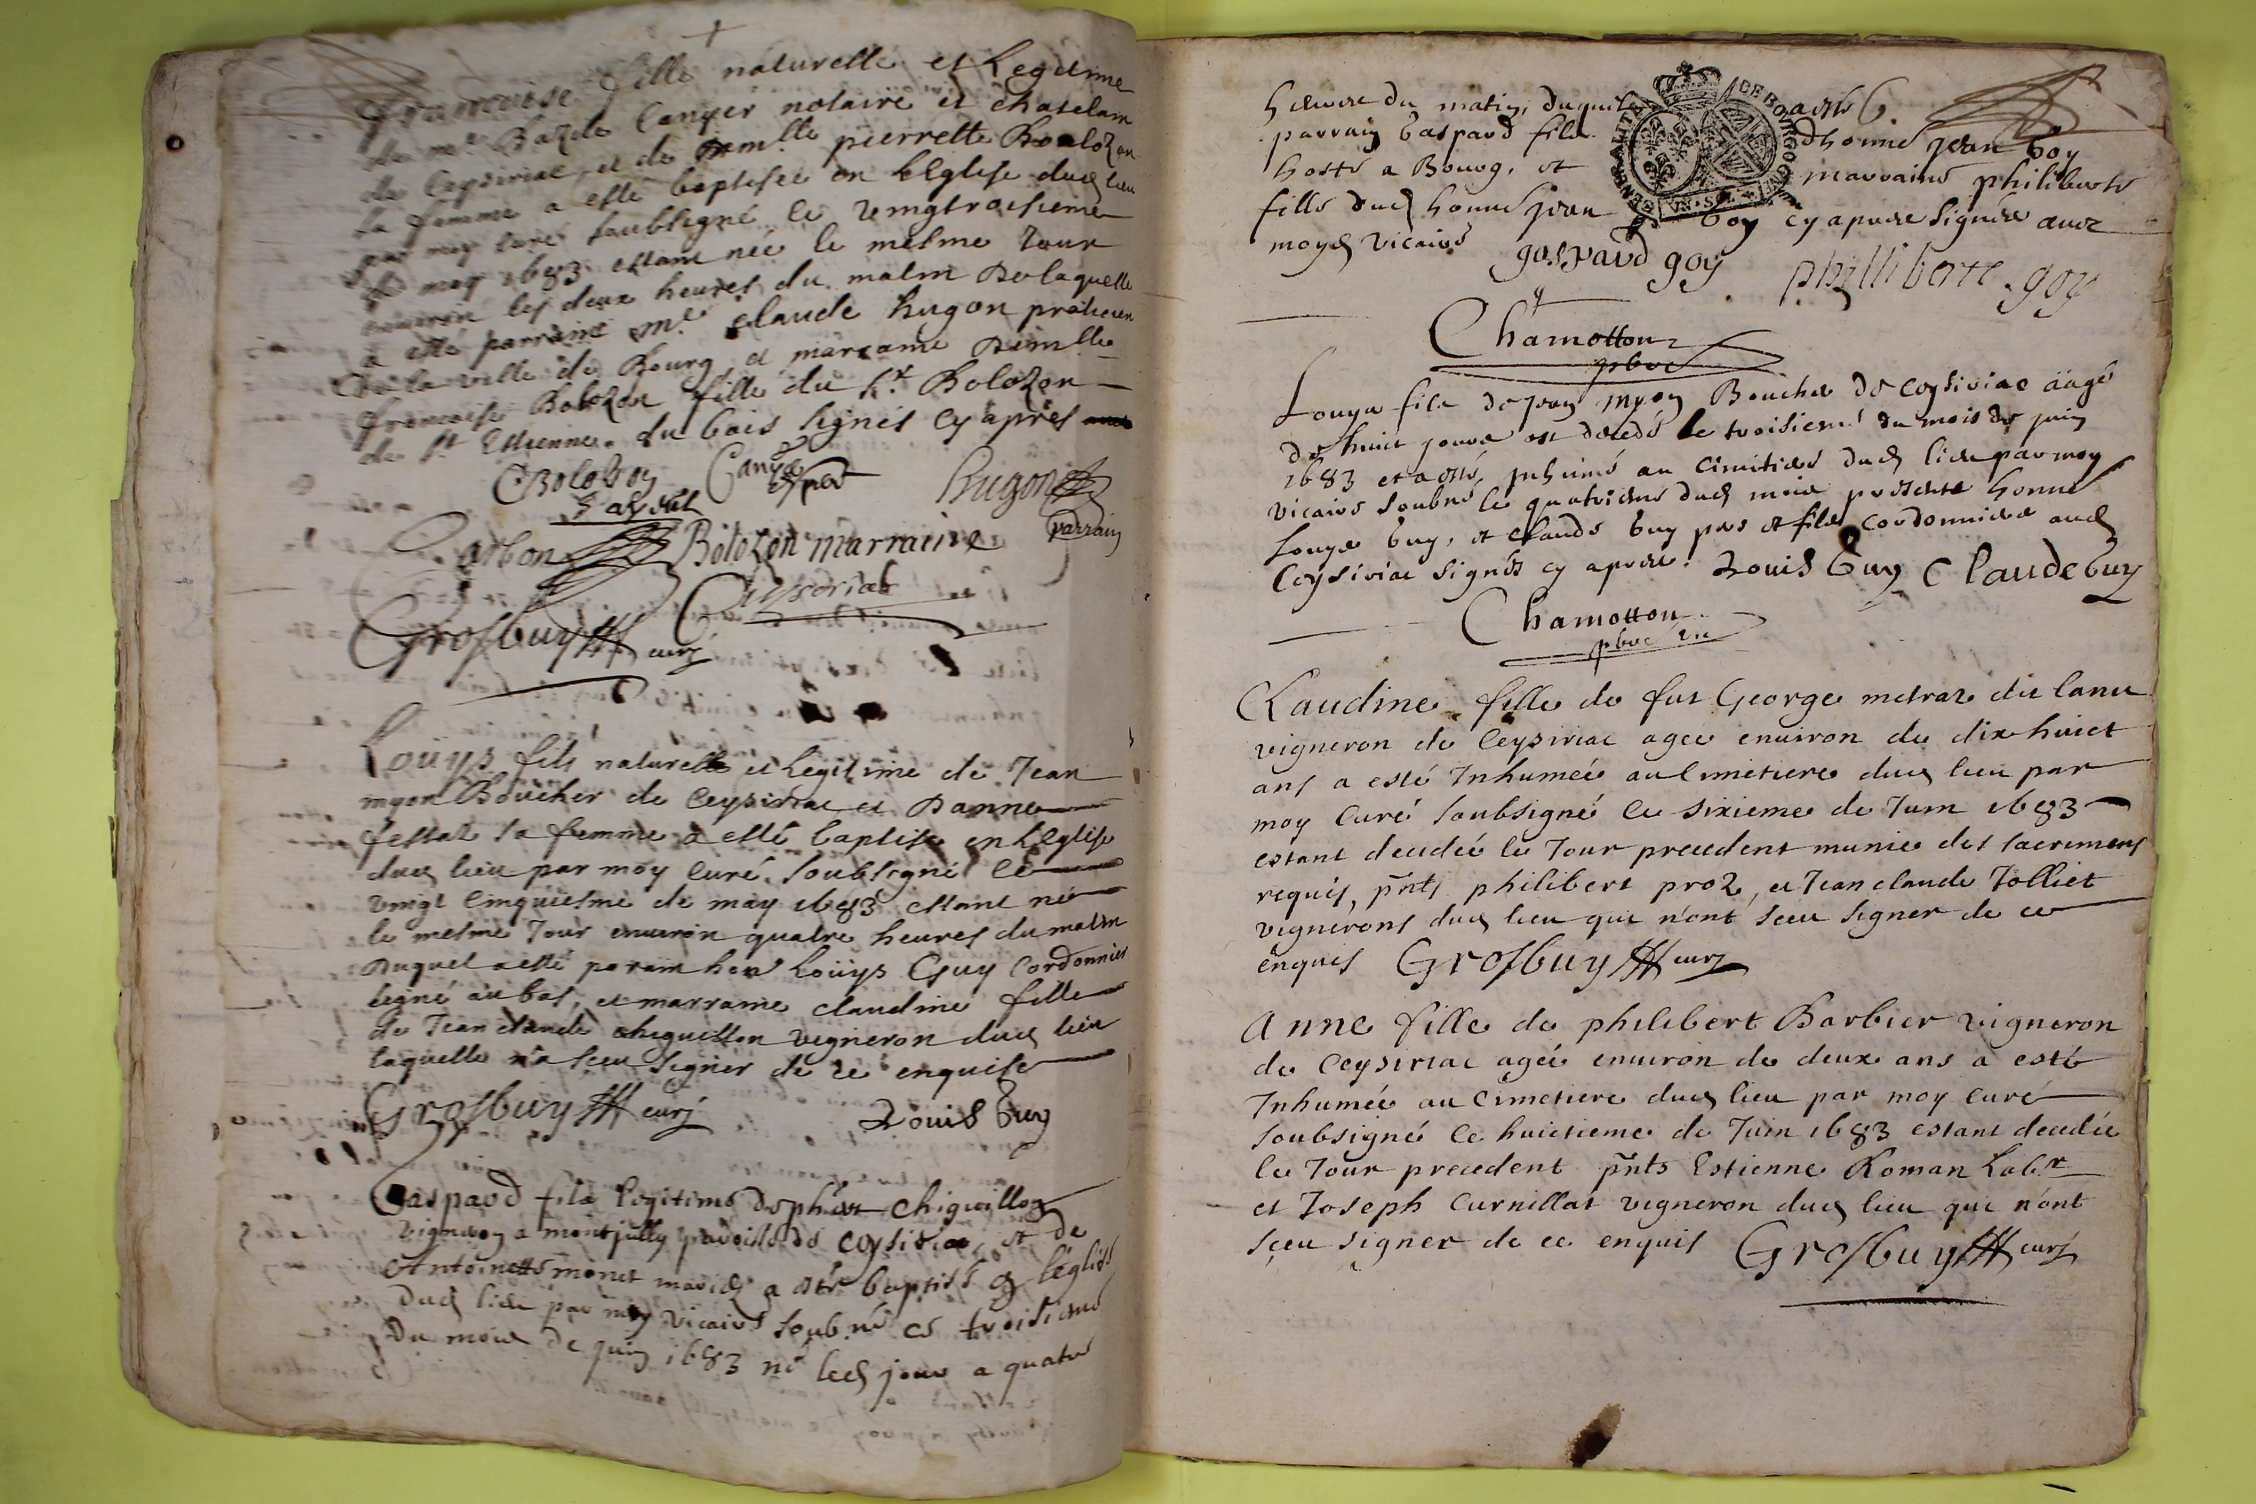 francoise fille naturelle et Legitime
de me Bazile Canyer notaire et chatelain
de Ceysiriac, et de demlle pierrette Bolozon
sa femme a esté baptisée en lEglise dud lieu
par moy curé soubsigné le vingtroisieme
de may 1683 estant née le mesme Jour
environ les deux heures du matin De laquelle
a esté parrain me claude hugon praticien
De la ville de Bourg et marraine Demlle
francoise Bolozon fille du sr Bolozon
de st Estienne du bois signés cy apres
Bolozon
Canyer
hugon
parrain
Carbon
Bolozon marraine
Grosbuy curé
Louys fils naturelle et Legitime de Jean
myon Boucher de Ceysiriac et Danne
festaz sa femme a esté baptise en LEglise
dud lieu par moy curé soubsigné le
vingt Cinquiesme de may 1683 estant né
le mesme Jour environ quatre heures du matin
Duquel a esté parain hon Louys Guy Cordonnier
signé au bas, et marraine claudine fille
de Jean claude chiguillon vigneron dud lieu
laquelle n'a sceu signer de ce enquise
Grosbuy curé
Louis Guy
Gaspard fils legitime de phbert Chiguillon
vigneron a montjully paroisse de Ceysiriac, et de
Antoinette monet mariés a esté baptisé en léglise
Dud lieu par moy vicaire soubné ce troisieme
Du mois de juin 1683 né led jour a quatre
heures du matin, duquel a esté
parrain Gaspard fils dhonné jean Goy
hoste a Bourg, et marraine philiberte
fille dud honné jean Goy cy apres signés avec
moyd vicaire gaspard goy philliberte goy
GENERALITE DE BOURGOGNE
Chamotton
pbre
Louys fils de Jean myon Boucher de Ceysiriac aagé
de huict jours est decedé le troisieme du mois de juin
1683 et a esté inhumé au Cimitiere dud lieu par moy
vicaire soubné le quatrieme dud mois presents honné
Louys Guy, et Claude Guy pere et fils Cordonniers aud
Ceysiriac signés cy apres. Louis Guy Claude Guy
Chamotton
pbre vic
Claudine fille de fut George metraz dit lanu
vigneron de Ceysiriac agee environ de dix huict
ans a esté Inhumée au Cimetiere dud lieu par
moy Curé soubsigné le sixieme de Juin 1683
estant decedée le Jour precedent munie des sacremens
requis, pnts philibert proz, et Jean claude Jolliet
vignerons dud lieu qui n'ont sceu signer de ce
enquis Grosbuy curé
Anne fille de philibert Barbier vigneron
de Ceysiriac agée environ de deux ans a esté
Inhumée au Cimetiere dud lieu par moy curé
soubsigné le huictieme de Juin 1683 estant decedée
le Jour precedent pnts Estienne Roman Labr
et Joseph Curnillat vigneron dud lieu qui n'ont
sceu signer de ce enquis Grosbuy curé